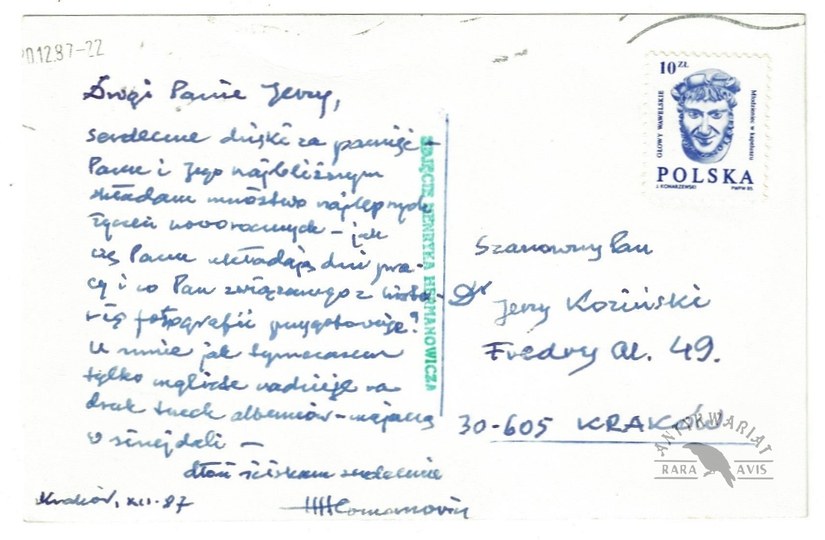 20.12.87-22
Drogi Panie Jerzy,
serdeczne dzięki za pamięć –
Panu i Jego najbliższym
składam mnóstwo najlepszych
życzeń noworocznych – jak
się Panu układają dni pra-
cy i co Pan związanego z histo-
rią fotografii przygotowuje?
U mnie jak tymczasem
tylko mgliste nadzieje na
druk trzech albumów – majaczą
w sinej dali –
dłoń ściskam serdecznie
Kraków, XII-87
HHermanowicz
ZDJĘCIE HENRYKA HERMANOWICZA
10 ZŁ
GŁOWY WAWELSKIE
Młodzieniec w kapeluszu
POLSKA
J. KONARZEWSKI PWPW 85
Szanowny Pan
Dr Jerzy Koziński
Fredry Al. 49.
30-605 KRAKÓW
ANTYKWARIAT
RARA AVIS